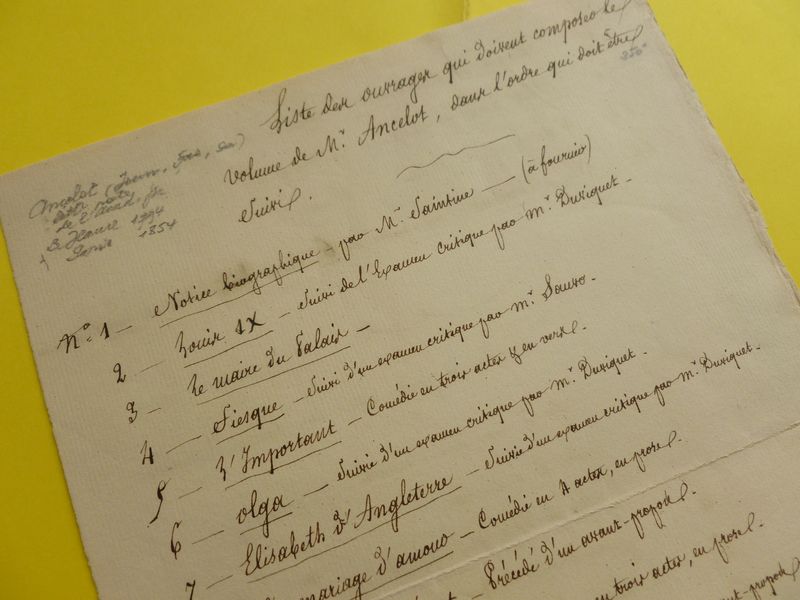 Liste des ouvrages qui doivent composer le
volume de Mr. Ancelot, dans l'ordre qui doit être
suivi.
350
Ancelot
de l'Acad. fr
Havre 1794
1854
No. 1 — Notice biographique — par Mr. Saintine — (à fournir)
2 — Louis IX — Suivi de l'Examen critique par Mr. Duviquet —
3 — Le maire du Palais —
4 — Fiesque — Suivi d'un examen critique par Mr. Sauvo —
5 — L'Important — Comédie en trois actes & en vers.
6 — Olga — Suivie d'un examen critique par Mr. Duviquet —
7 — Elisabeth d'Angleterre — Suivie d'un examen critique par Mr. Duviquet —
mariage d'amour — Comédie en 4 actes, en prose.
— Précédé d'un avant-propos.
en trois actes, en prose.
avant-propos